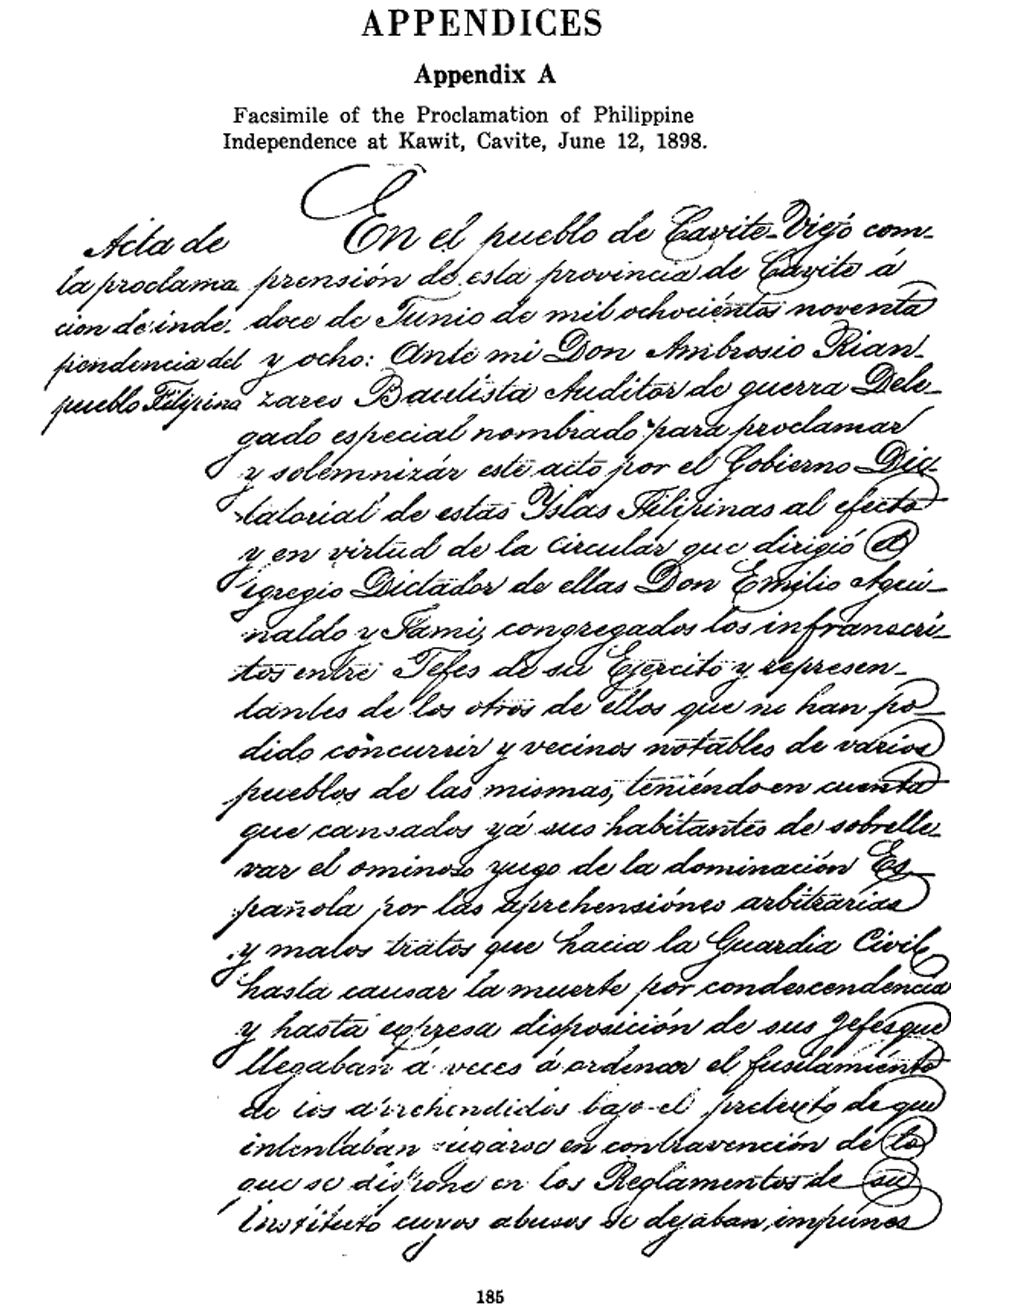 APPENDICES
Appendix A
Facsimile of the Proclamation of Philippine
Independence at Kawit, Cavite, June 12, 1898.
Acta de
la proclama
cion de inde.
pendencia del
pueblo Filipino
En el pueblo de Cavite-Viejó com-
prensión de esta provincia de Cavite á
doce de Junio de mil ochociéntos noventa
y ocho: Ante mi Don Ambrosio Rian-
zares Bautista Auditor de guerra Dele-
gado especial nombrado para proclamar
y solemnizár este acto por el Gobierno Dic-
tatorial de estas Yslas Filipinas al efecto
y en virtud de la circular que dirigió el
egregio Dictador de ellas Don Emilio Agui-
naldo y Fami, congregados los infrancri-
tos entre Jefes de su Ejercito y represen-
tantes de los otros de ellos que no han po-
dido concurrir y vecinos notables de varios
pueblos de las mismas, teniéndo en cuenta
que cansados yá sus habitantes de sobrelle-
var el ominoso yugo de la dominación Es-
pañola por las aprehensiónes arbitrarias
y malos tratos que hacia la Guardia Civil
hasta causar la muerte por condescendencia
y hasta expresa disposición de sus Jefes que
llegaban á veces á ordenar el fusilamiénto
de los aprehendidos bajo el pretexto de que
intentaban fugarse en contravención de lo
que se dispone en los Reglamentos de su
Instituto cuyos abusos se dejaban impunes
185